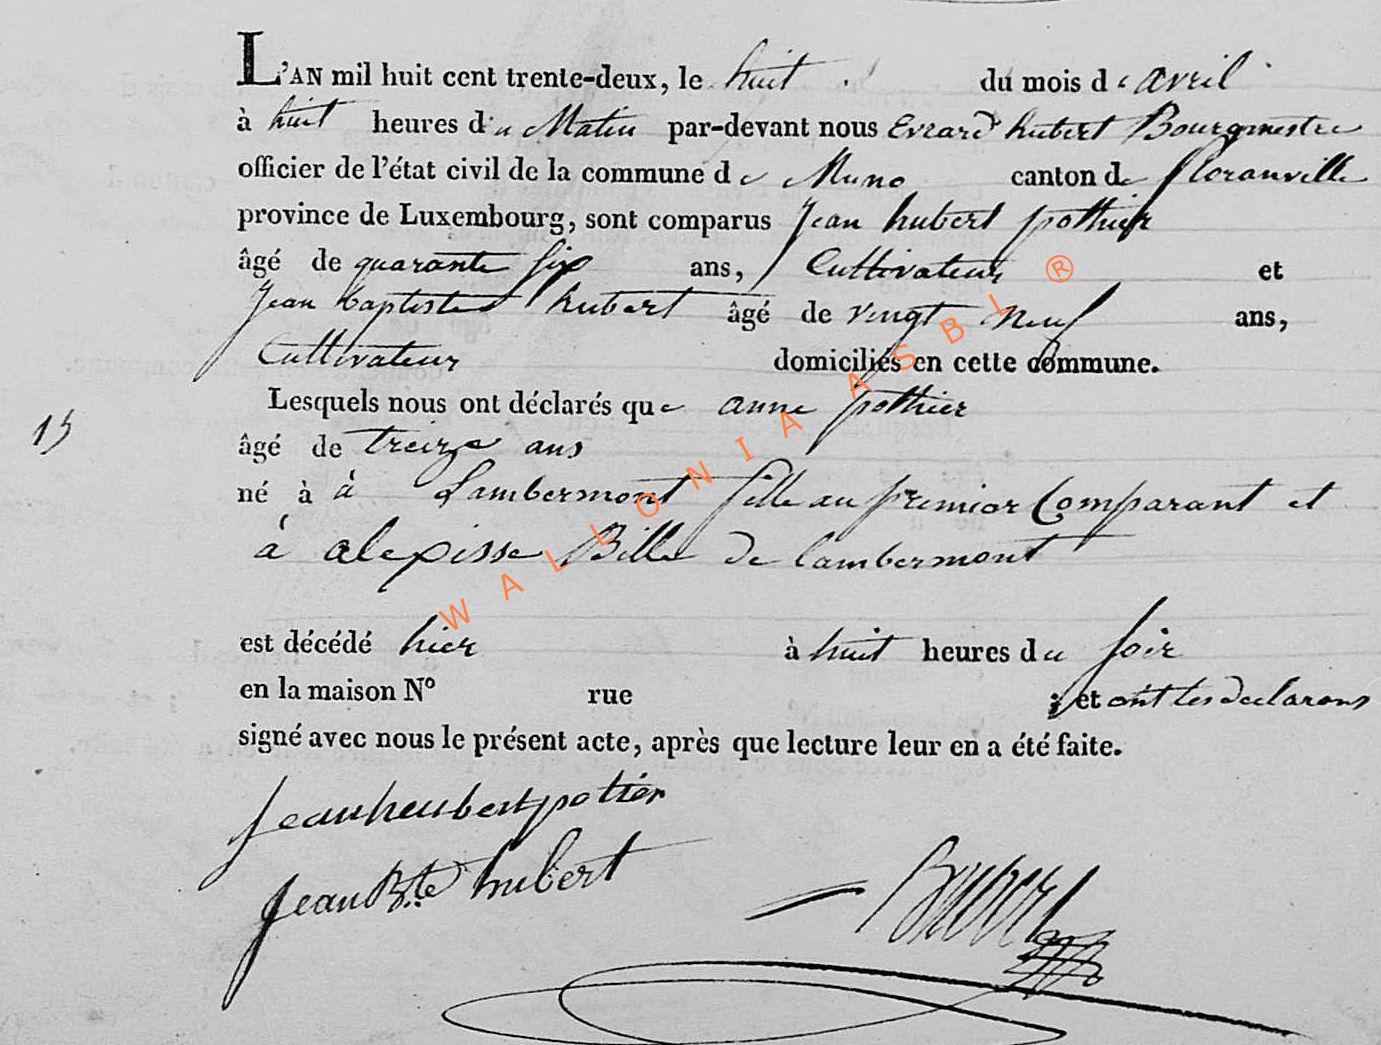 L'AN mil huit cent trente-deux, le huit du mois de avril
à huit heures du Matin par-devant nous Evrard hubert Bourgmestre
officier de l'état civil de la commune de Muno canton de floranville
province de Luxembourg, sont comparus Jean hubert pothier
âgé de quarante six ans, Cultivateur et
Jean baptiste hubert âgé de vingt neuf ans,
Cultivateur domiciliés en cette commune.
Lesquels nous ont déclarés que anne pothier
15
âgé de treize ans
né à à Lambermont fille au premier Comparant et
à alexisse Bille de lambermont
est décédé hier à huit heures du soir
en la maison N° rue ; et ont les declarans
signé avec nous le présent acte, après que lecture leur en a été faite.
jeanheubertpotier
jean Bte hubert
WALLONIA ASBL ®